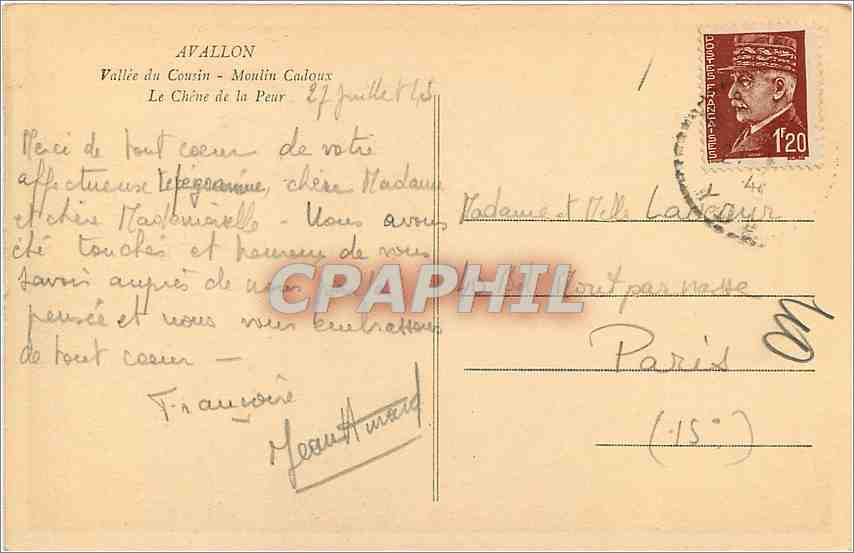 AVALLON
Vallée du Cousin - Moulin Cadoux
Le Chêne de la Peur
27 juillet 43
Merci de tout coeur de votre
affectueuse chère Madame
et chère Mademoiselle - Nous avons
été touchés et heureux de vous
savoir auprès de nous
pensée et nous vous embrassons
de tout coeur -
Françoise
Jean
POSTES FRANÇAISES
1F20
Madame et Melle
Montparnasse
Paris
(15°)
CPAPHIL